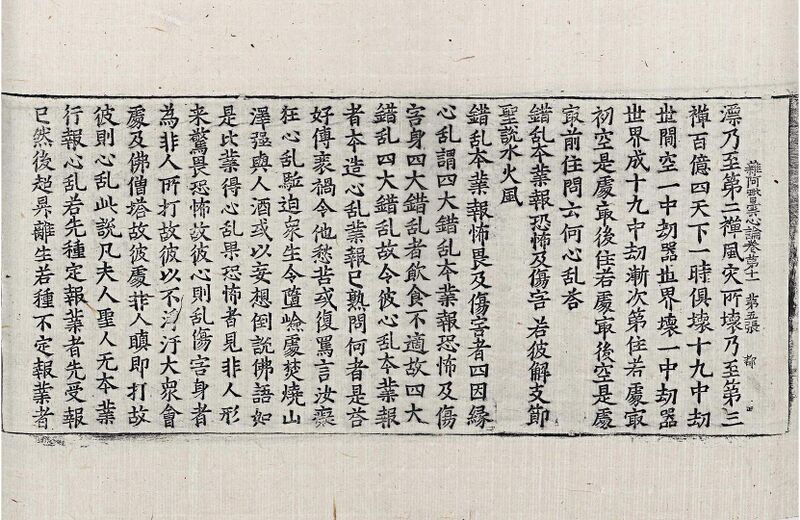 雜阿毗曇心論卷苐十一 第五張 都
漂乃至第二禪風灾所壞乃至第三
禪百億四天下一時俱壞十九中劫
丗間空一中劫器丗界壞一中劫器
世界成十九中劫漸次第住若處㝡
初空是處㝡後住若處㝡後空是處
㝡前住問云何心乱荅
錯乱本業報恐怖及傷害 若彼解支節
聖說水火風
錯乱本業報怖畏及傷害者四因緣
心乱謂四大錯乱本業報恐怖及傷
害身四大錯乱者飲食不適故四大
錯乱四大錯乱故令彼心乱本業報
者本造心乱業報已熟問何者是荅
好傳衰禍令他愁苦或復罵言汝癡
狂心乱駈迫衆生令墮嶮處焚燒山
澤强與人酒或以妄想倒說佛語如
是比業得心乱果恐怖者見非人形
来驚畏恐怖故彼心則乱傷害身者
為非人所打故彼以不淨汙大衆會
處及佛僧塔故彼處非人瞋即打故
彼則心乱此說凡夫人聖人无本業
行報心乱若先種定報業者先受報
已然後超昇離生若種不定報業者